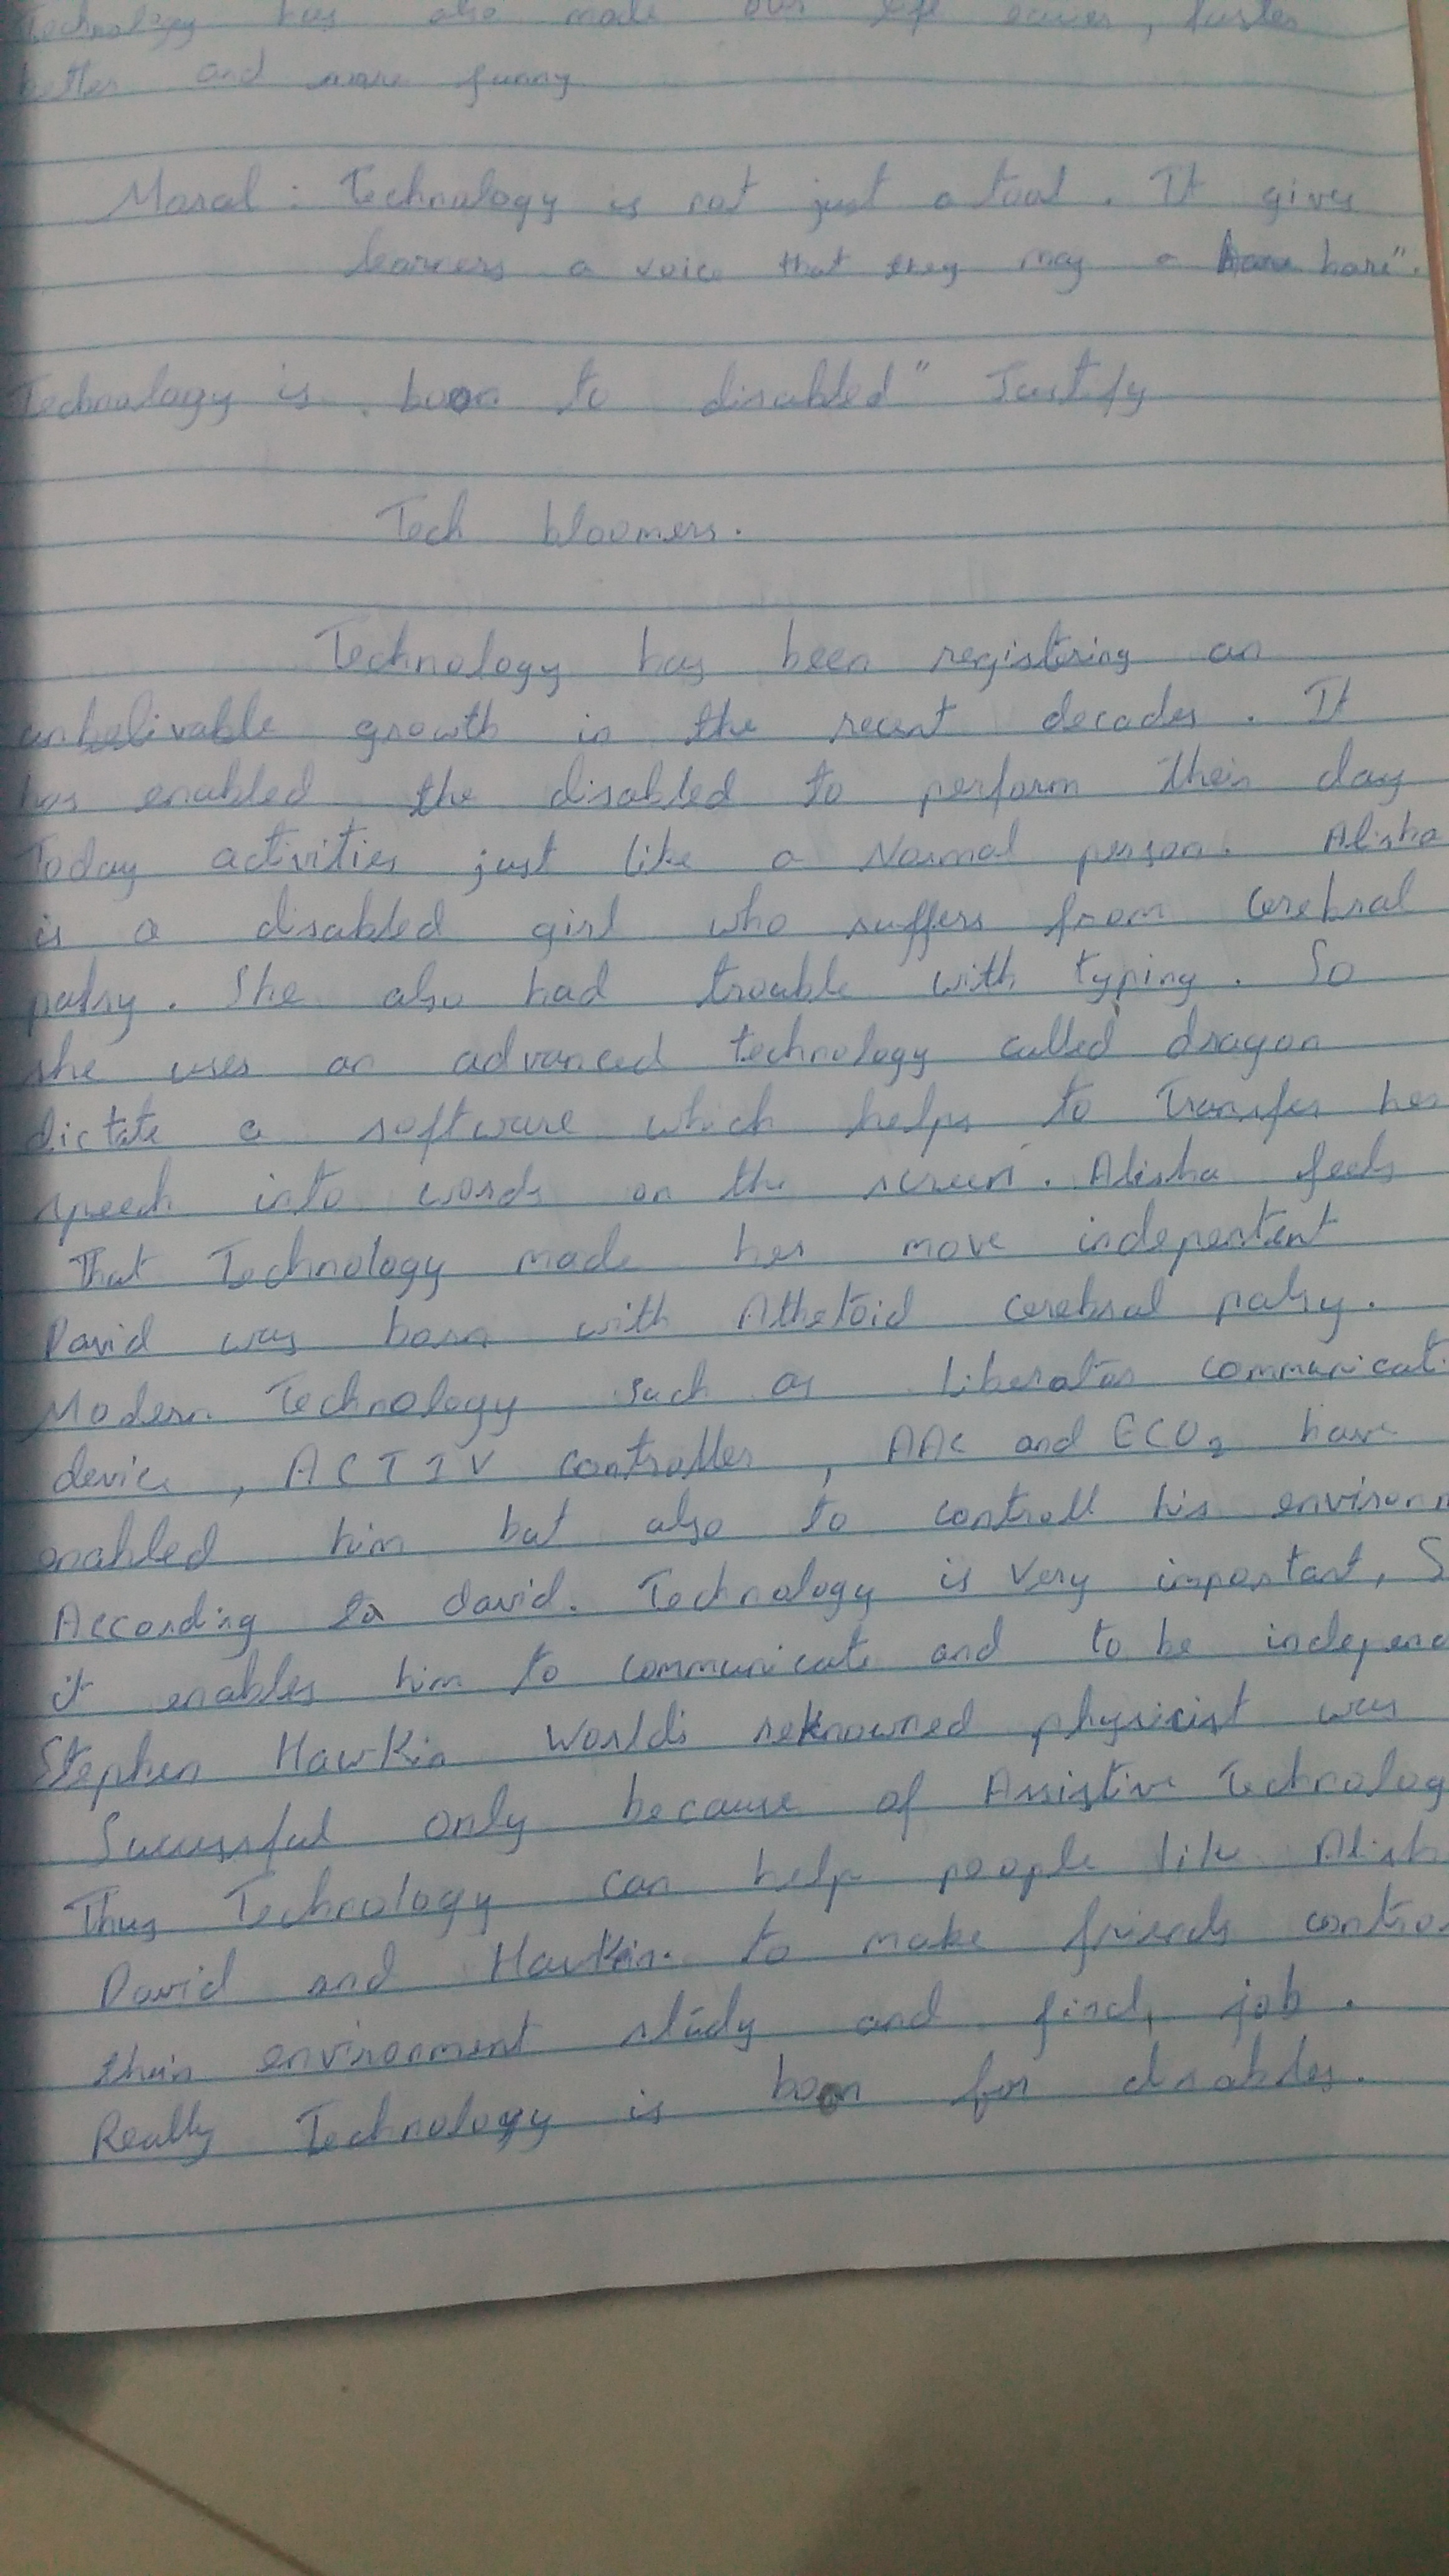 Technology has also made our life easier, faster
better and more funny
Moral : Technology is not just a tool. It gives
learners a voice that they may a have"
Technology is boon to disabled" Justify
Tech bloomers.
Technology has been registering an
unbelivable growth in the recent decades. It
has enabled the disabled to perform their day
Today activities just like a Normal person. Alisha
is a disabled girl who suffers from cerebral
palsy. She also had trouble with typing. So
she uses an advanced technology called dragon
dictate a software which helps to Transfer her
speech into words on the screen. Alisha feels
That Technology made her move indepentent
David was born with Athetoid cerebral palsy.
Modern Technology such as Liberator communicati
device, ACTIV controller, AAC and ECO2 have
enabled him but also to controll his environm
According to david. Technology is very important, S
it enables him to communicate and to be independ
Stephen Hawkin World's reknowned physicist was
Sucessful only because of Assistive Technolog
Thus Technology can help people like Alish
David and Hawkin. to make friends contro
their environment study and find job.
Really Technology is boon for disables.